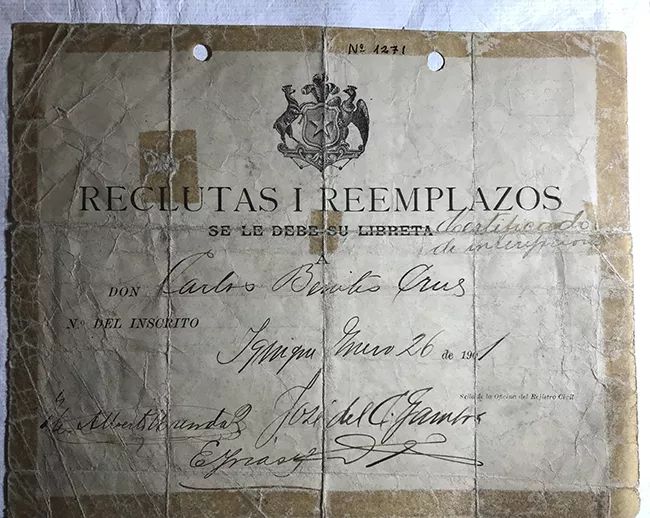 Nº 1271
RECLUTAS I REEMPLAZOS
SE LE DEBE SU LIBRETA
Certificado
de inscripcion
A
DON Carlos Benito Cruz
N.º DEL INSCRITO
Iquique Enero 26 de 1901
Sello de la Oficina del Rejistro Civil
José del C.